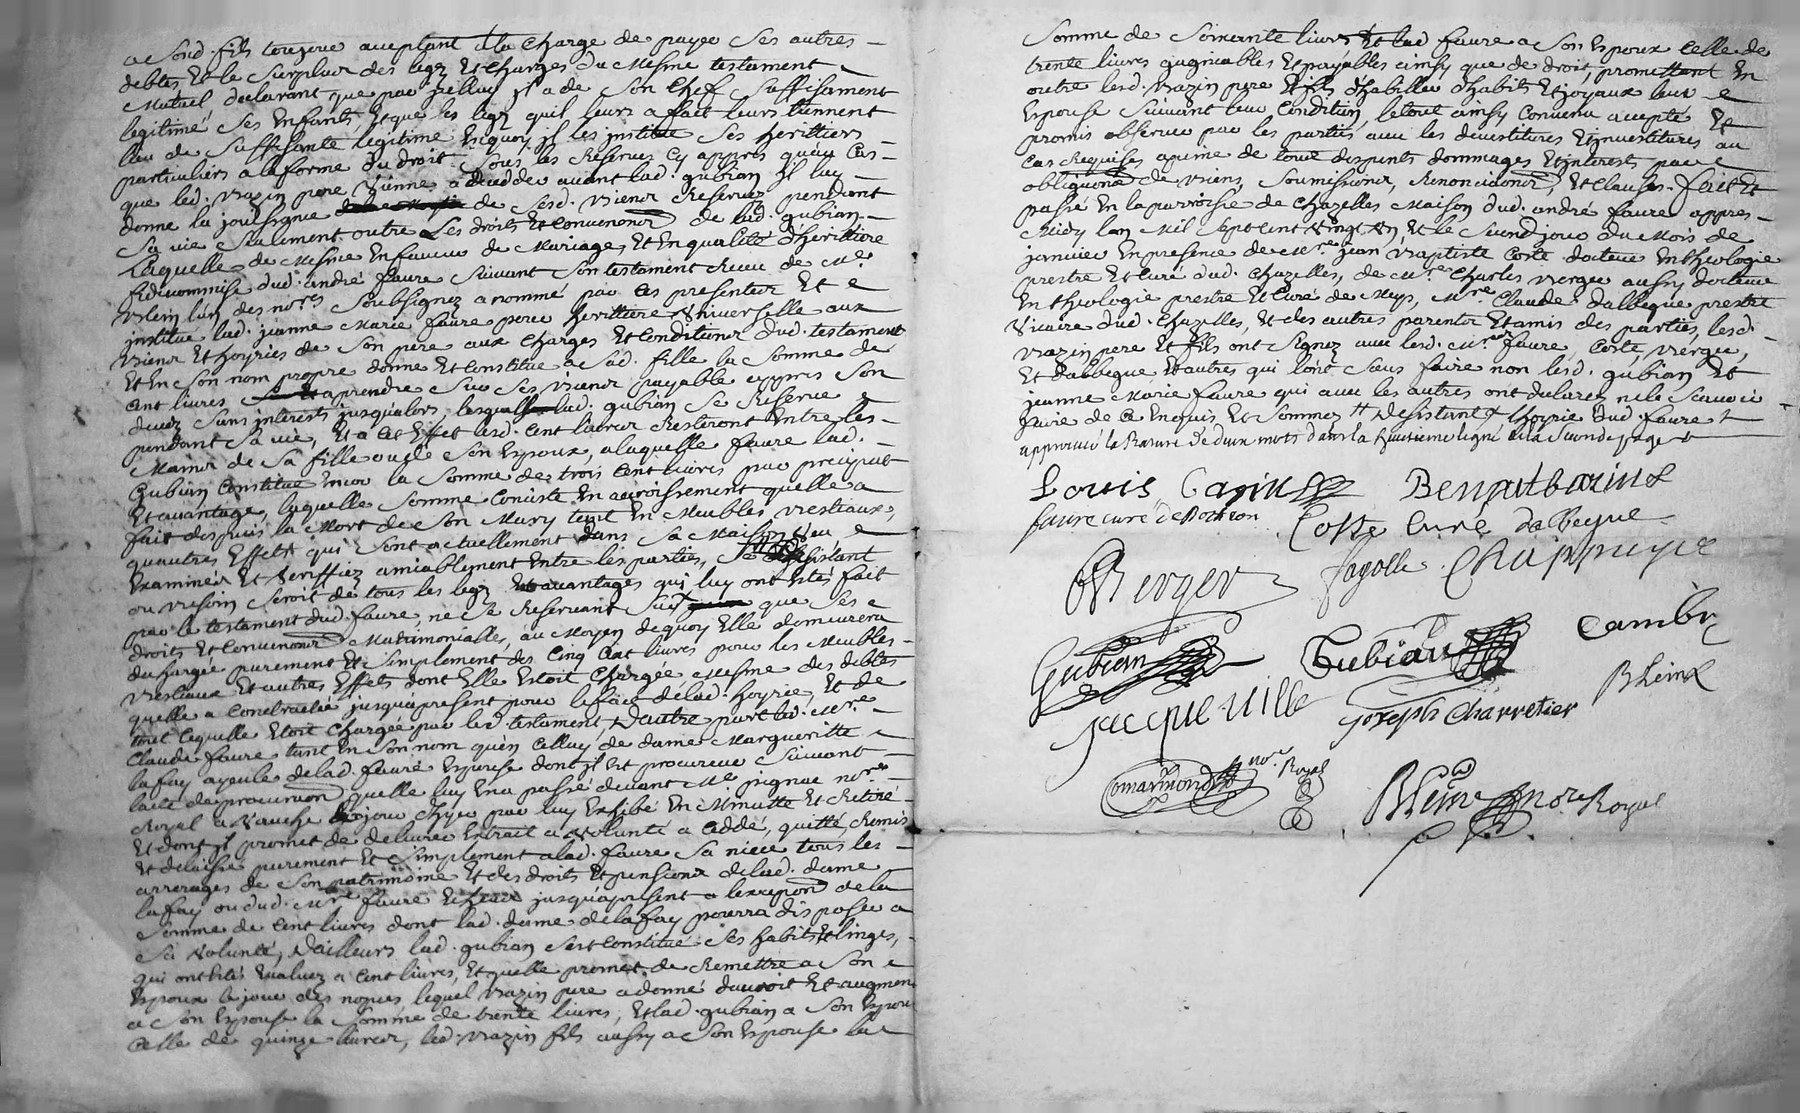 a Sond. fils tout ce acceptant a la charge de payer ses autres
debtes, Et le Surplus des legz Et charges du Mesme testament
Mutuel declarant que par Icelluy Il a de Son Chef Suffisament
legitimé Ses Enfants, Et que les legz quil leurs a fait leurs tiennent
lieu de Suffisante legitime En quoy Il les institue Ses heritiers
particuliers a la forme du droit Sous les Reserves Cy appres qu'au Cas
que led. Bazin pere Vienne a deceder avant lad. gubian Il luy
donne la jouissance de Sesd. biens Reservez pendant
Sa vie Seulement outre Ses droits Et Conventions de lad. gubian
Laquelle de Mesme En faveur de Mariage, Et En qualité d'heritiere
fideicommise dud. andré faure Suivant Son testament Receu de Me.
Blein lun des nores Soubsignez a nommé par Ces presentes Et
institué lad. jeanne Marie faure pour heritiere Universelle aux
biens Et hoyries de Son pere aux charges Et Conditions dud. testament
Et En Son nom propre donne Et Constitue a Sad. fille la Somme de
Cent livres a prendre Sur Ses biens payable appres Son
deces Sans interests jusqualors, lesquels lad. gubian Se Reserve
pendant Sa vie, Et a Cet Effet lesd. Cent livres Resteront Entre les
Mains de Sa fille ou de Son Espoux, a laquelle faure lad.
Gubian Constitue Encor la Somme de trois Cent livres par preciput
Et avantage, laquelle Somme Consiste En accroissement quelle a
fait despuis la Mort de Son Mary tant En Meubles bestiaux,
quautres Effets qui Sont actuellement dans Sa Maison Veu,
Examinés Et Verifiez amiablement Entre les parties, Se desistant
ou besoin Seroit de tous les legz Et avantages qui luy ont Etés fait
par le testament dud. faure, ne Se Reservant Sur que Ses
droits Et Conventions Matrimonialles, au Moyen de quoy Elle demeurera
dechargée purement Et Simplement des Cinq Cent livres pour les Meubles
bestiaux Et autres Effets dont Elle Estoit Chargée Mesme des debtes
quelle a Contractée jusqu'a present pour le fait de lad. hoyrie, Et de
tout Cequelle Etoit Chargée par led. testament, D'autre part led. Mre.
Claude faure tant En Son nom qu'en Celluy de dame Margueritte
lafay ayeule de lad. faure Espouse dont Il Est procureur Suivant
lacte de procuration quelle luy En a passé devant Me. pignac nore.
Royal a Vauche
Et dont Il promet de delivrer Extrait a Volunté a Cedde, quitte, Remis
Et delaisse purement Et Simplement a lad. faure Sa niece tous les
arrerages de Son patrimoine Et des droits Et pensions de lad. dame
lafay ou dud. Mre faure jusqu'apresent a lexception de la
Somme de Cent livres dont lad. dame de lafay pourra disposer a
Sa Volunté, D'ailleurs lad. gubian Sest Constitué Ses habits Et linges,
qui ont Etés Evaluez a Cent livres, Et quelle promet de Remettre a Son
Espoux le jour des nopces lequel Bazin pere a donné daccroit Et augment
a Son Espouse la Somme de trente livres, Et lad. gubian a Son Espoux
Celle de quinze livres, led. Bazin fils aussy a Son Espouse la
Somme de Soixante livres Et lad. faure a Son Espoux Celle de
trente livres gagniables Et payables ainsy que de droit, promettant En
outre lesd. Bazin pere Et fils d'habiller d'habits Et joyaux leur
Espouse Suivant leur Condition, letout ainsy Convenu accepté Et
promis observer par les parties avec les devestitures Et investitures au
Cas Requises a peine de tous despents dommages Et interests par
obligations de biens, Soumissions, Renonciations, Et Clauses. fait Et
passé En la parroisse de Chazelles Maison dud. andré faure appres
Midy lan Mil Sept Cent Vingt Un Et le Second jour du Mois de
janvier En presence de Mre. jean Baptiste Coste docteur En theologie
prestre Et Curé dud. Chazelles, de Mre. Charles Berger aussy docteur
En theologie prestre Et Curé de Meys, Mre. Claude Dalbegue prestre
Vicaire dud. Chazelles, Et des autres parents Et amis des parties, lesd.
Bazin pere Et fils ont Signez avec lesd. Mres. faure, Coste, Berger,
Et Dalbegue, Et autres qui l'ont Sceu faire non lesd. gubian Et
jeanne Marie faure qui avec les autres ont declarez ne le Scavoir
faire de Ce Enquis Et Sommez Desistant hoyrie dud. faure
approuvé la Rature de deux mots dans la huitieme ligne de la Seconde page
Louis Bazin Benoit bazin
faure curé de Coste Curé dalbegue
Berger fayolle Chappuy
Gubian Gubian Cambr
jacque Ville joseph Charretier Blein
Comarmond nore Royal Blein nore Royal